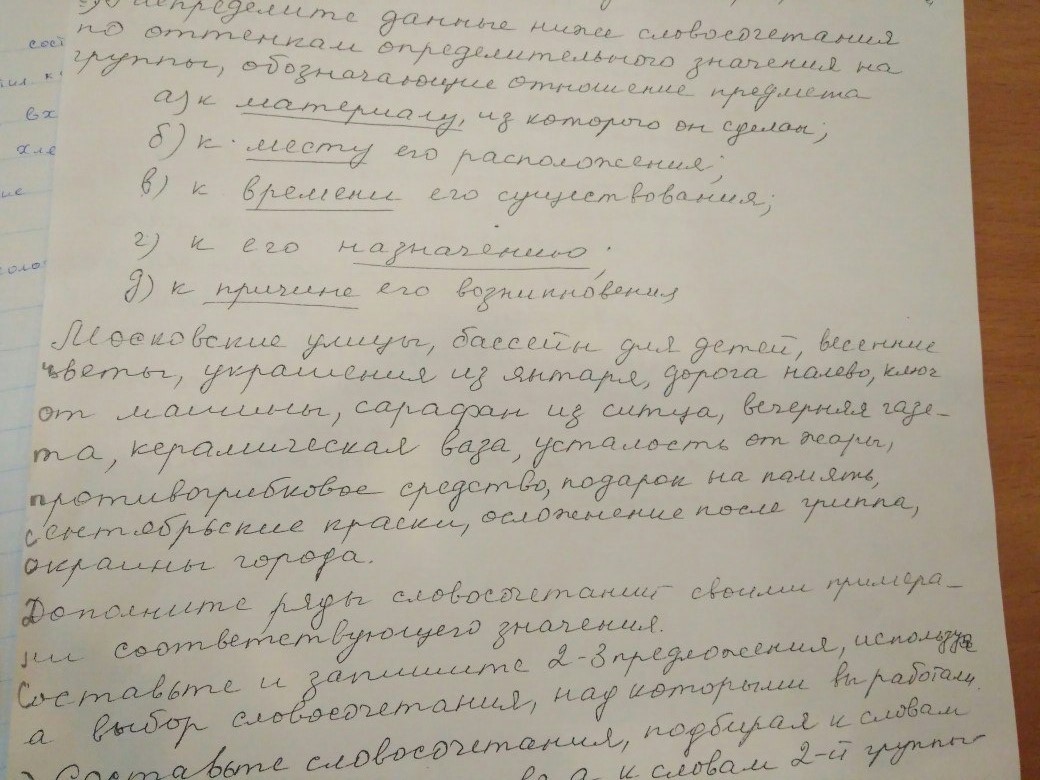 Распределите данные ниже словосочетания
по оттенкам определительного значения на
группы, обозначающие отношение предмета
а) к материалу, из которого он сделан;
б) к месту его расположения;
в) к времени его существования;
г) к его назначению;
д) к причине его возникновения
Московские улицы, бассейн для детей, весенние
цветы, украшения из янтаря, дорога налево, ключ
от машины, сарафан из ситца, вечерняя газе-
та, керамическая ваза, усталость от жары,
противогрибковое средство, подарок на память,
сентябрьские краски, осложнение после гриппа,
окраины города.
Дополните ряды словосочетаний своими примера-
ми соответствующего значения.
Составьте и запишите 2-3 предложения, используя
а выбор словосочетания, над которыми вы работали.
Составьте словосочетания, подбирая к словам
а к словам 2-й группы